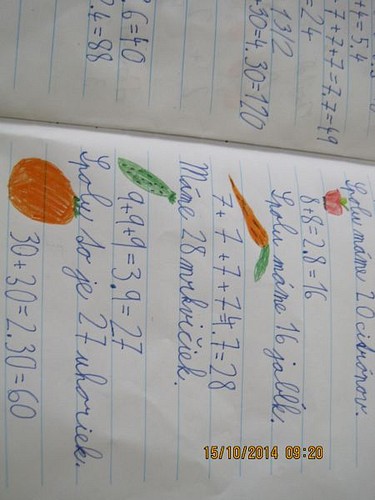 +4=5.4
+7+7+7=7.7=49
=24
13/2
+30=4.30=120
.6=40
2.4=88
Spolu máme 20 citrónov.
8+8=2.8=16
Spolu máme 16 jabĺk.
7+7+7+7=4.7=28
Máme 28 mrkvičiek.
9+9+9=3.9=27
Spolu to je 27 uhoriek.
30+30=2.30=60
15/10/2014 09:20